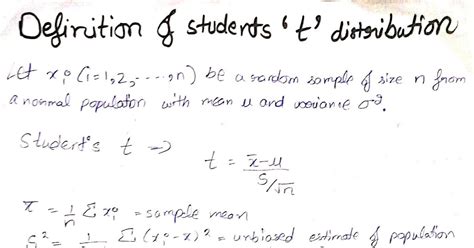 Definition of students 't' distribution
Let xi (i=1,2,-----,n) be a random sample of size n from
a normal population with mean μ and variance σ².
Student's t ⇒ t = x̄-μ / S/√n
x̄ = 1/n Σ xi = sample mean
S² = 1/ Σ (xi-x̄)² = unbiased estimate of population